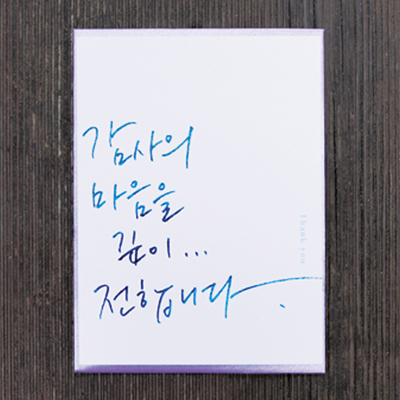 감사의
마음을
깊이...
전합니다.
Thank you